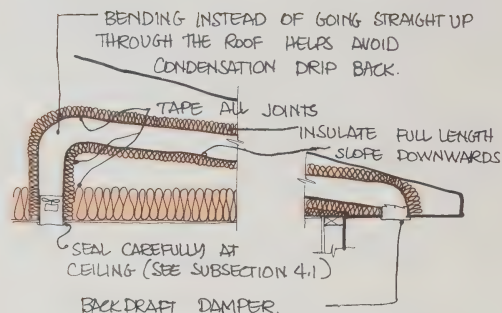 BENDING INSTEAD OF GOING STRAIGHT UP
THROUGH THE ROOF HELPS AVOID
CONDENSATION DRIP BACK.
TAPE ALL JOINTS
INSULATE FULL LENGTH
SLOPE DOWNWARDS
SEAL CAREFULLY AT
CEILING (SEE SUBSECTION 4.1)
BACKDRAFT DAMPER.